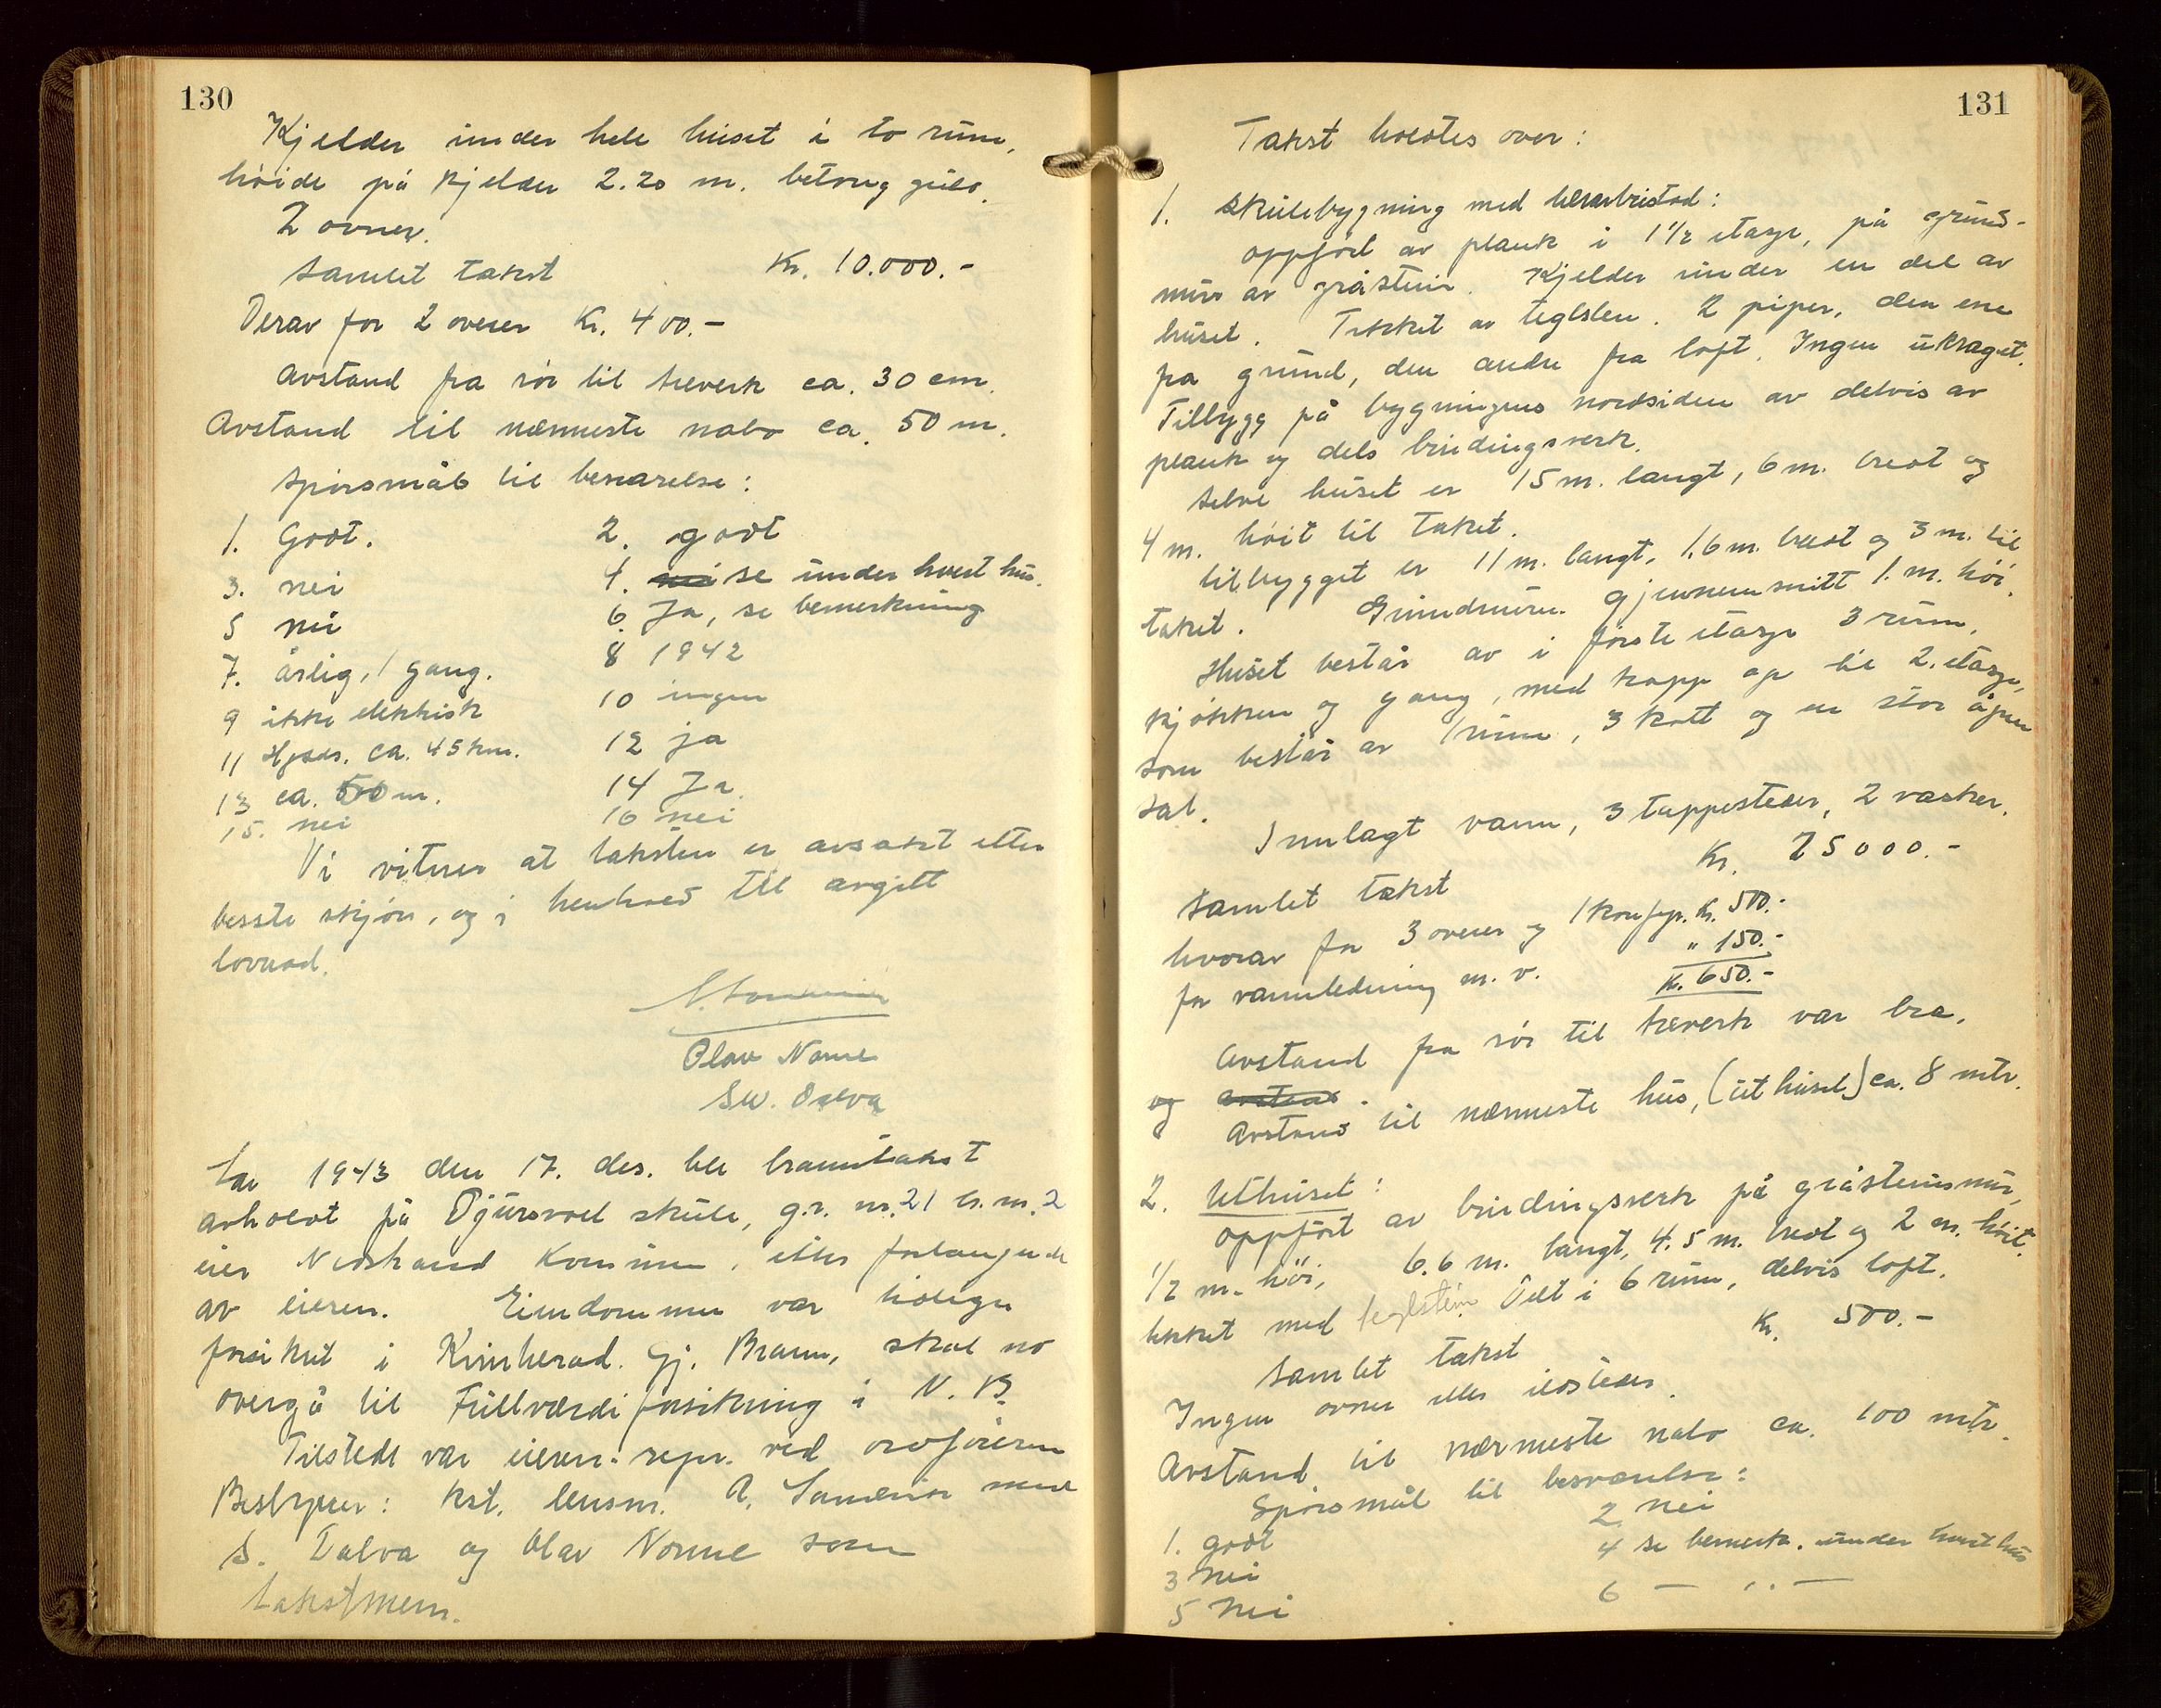 130
Kjelder under hele huset i to rum,
høide på kjelder 2.20 m. betong gulv.
2 ovner.
Samlet takst Kr. 10.000.-
Derav for 2 ovner Kr. 400.-
Avstand fra rör til treverk ca. 30 cm.
Avstand til nærmeste nabo ca. 50 m.
Spörsmål til besvarelse:
1. Godt. 2. godt
3. nei 4. nei se under hvert hus.
5 nei 6. Ja, se bemerkning
7. årlig, 1 gang. 8 1942
9 ikke elektrisk 10 ingen
11 ca. 45 km. 12 ja
13 ca. 50 m. 14 Ja.
15. nei 16 nei
Vi vitner at taksten er avsakt etter
beste skjön, og i henhold til avgitt
lovnad.
Olav Nonne
1943 den 17. des. ble branntakst
avholdt på skule, g.r. nr. 21 b.nr. 2
eier Nedstrand Kommune, etter forlangende
av eieren. Eiendommen var tidligere
forsikret i Kvinherad. Gj. Brann, skal no
overgå til Fullverdiforsikring i N. B.
Tilstede var eieren repr. ved ordföreren
Bestyrer: kst. lensm. med
S. Dalva og Olav Nonne som
takstmenn.
131
Takst holdtes over:
1. Skulebygning med lærarbustad:
oppfört av plank i 1 1/2 etasje, på grund-
mur av gråstein. Kjelder under en del av
huset. Tekket av teglsten. 2 piper, den ene
fra grund, den andre fra loft. Ingen utkraget.
Tilbygg på bygningens nordside av delvis av
plank og dels bindingsverk.
Selve huset er 15 m. langt, 6 m. bredt og
4 m. höit til taket.
tilbygget er 11 m. langt, 1.6 m. bredt og 3 m. til
taket. Grundmuren gjennemsnitt 1. m. höi.
Huset består av i förste etasje 3 rum,
kjökken og gang, med trapp op til 2. etasje,
som består av 1 rum, 3 kott og en stor åpen
sal.
Innlagt vann, 3 tappesteder, 2 vasker.
Samlet takst Kr. 25000.-
hvorav for 3 ovner og 1 komfyr. Kr. 500.-
for vannledning m. v. " 150.-
Kr. 650.-
Avstand fra rör til treverk var bra.
og avstand.
Avstand til nærmeste hus, (uthuset) ca. 8 mtr.
2. Uthuset:
oppfört av bindingsverk på gråsteinsmur,
1/2 m. höi, 6.6 m. langt, 4.5 m. bredt og 2 m. höit.
tekket med teglstein. Delt i 6 rum, delvis loft.
Samlet takst Kr. 500.-
Ingen ovner eller ildsteder.
Avstand til nærmeste nabo ca. 100 mtr.
Spörsmål til besvarelse:
1. godt 2. nei
3 nei 4 se bemerk. under hvert hus
5 nei 6 — ,, —